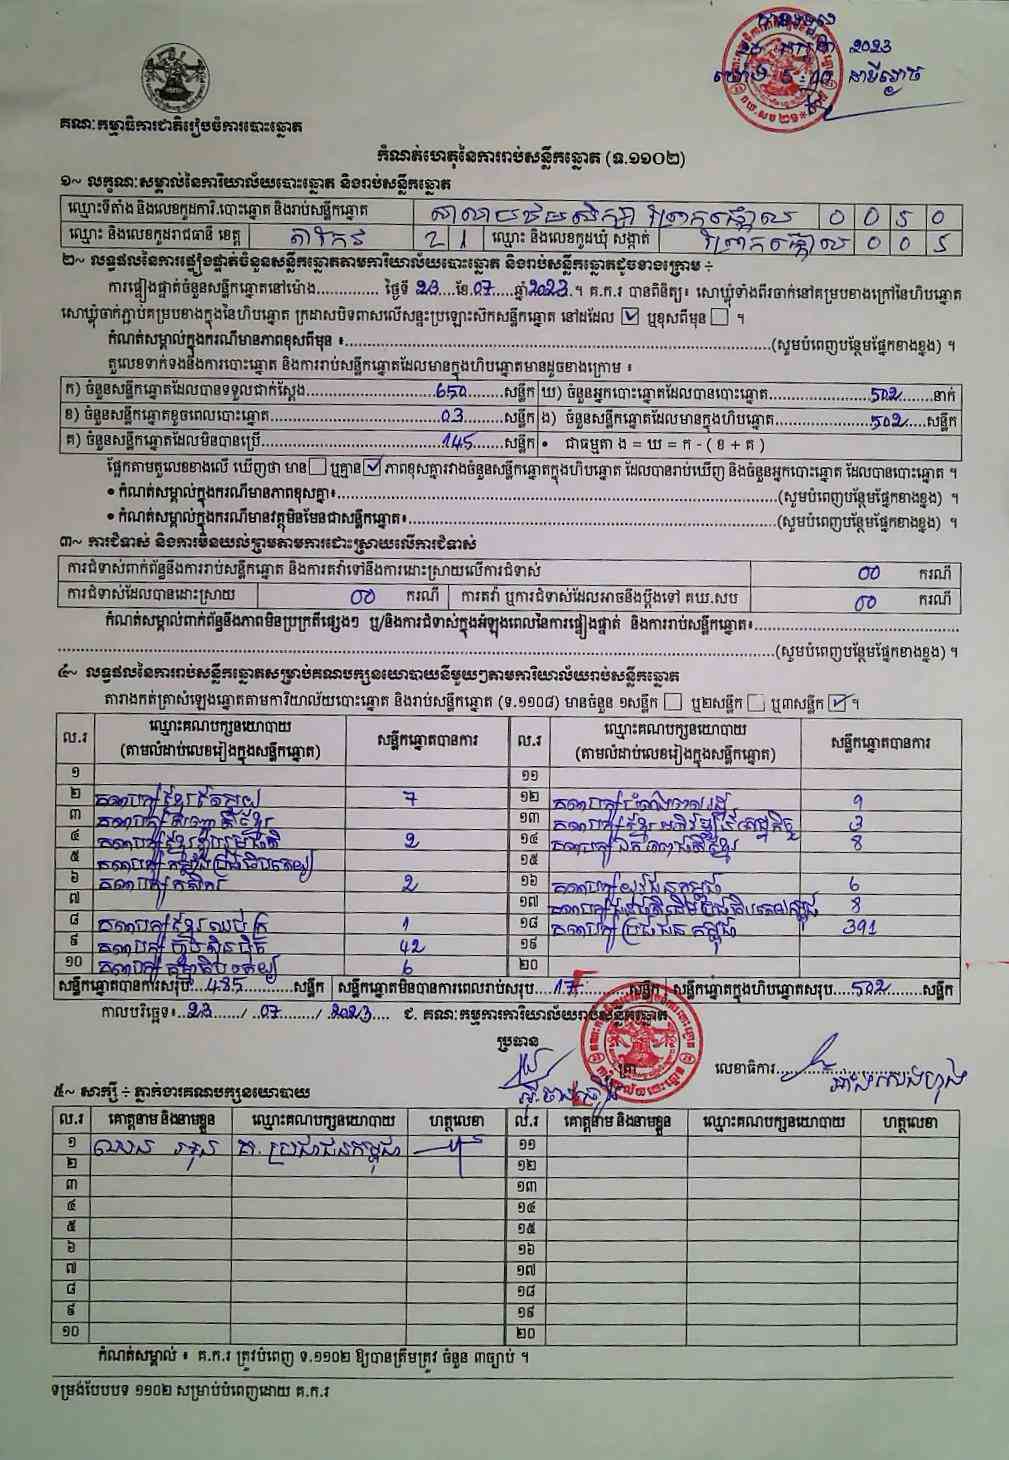 2023
គណៈកម្មាធិការជាតិរៀបចំការបោះឆ្នោត
កំណត់ហេតុនៃការរាប់សន្លឹកឆ្នោត (ទ.១១០២)
១~ លក្ខណៈសម្គាល់នៃការិយាល័យបោះឆ្នោត និងរាប់សន្លឹកឆ្នោត
ឈ្មោះទីតាំង និងលេខកូដការិ.បោះឆ្នោត និងរាប់សន្លឹកឆ្នោត 0 0 5 0
ឈ្មោះ និងលេខកូដរាជធានី ខេត្ត តាកែវ 2 1 ឈ្មោះ និងលេខកូដឃុំ សង្កាត់ 0 0 5
២~ លទ្ធផលនៃការផ្ទៀងផ្ទាត់ចំនួនសន្លឹកឆ្នោតតាមការិយាល័យបោះឆ្នោត និងរាប់សន្លឹកឆ្នោតដូចខាងក្រោម ÷
ការផ្ទៀងផ្ទាត់ចំនួនសន្លឹកឆ្នោតនៅម៉ោង.............. ថ្ងៃទី 23 ....ខែ.07.....ឆ្នាំ 2023.។ គ.ក.រ បានពិនិត្យ៖ សោឃ្លុំទាំងពីរចាក់នៅគម្របខាងក្រៅនៃហិបឆ្នោត
សោឃ្លុំចាក់ភ្ជាប់គម្របខាងក្នុងនៃហិបឆ្នោត ក្រដាសបិទពាសលើសន្ទះប្រឡោះសិកសន្លឹកឆ្នោត នៅដដែល ☑ ឬខុសពីមុន ☐ ។
កំណត់សម្គាល់ក្នុងករណីមានភាពខុសពីមុន ៖........(សូមបំពេញបន្ថែមផ្នែកខាងខ្នង) ។
តួលេខទាក់ទងនឹងការបោះឆ្នោត និងការរាប់សន្លឹកឆ្នោតដែលមានក្នុងហិបឆ្នោតមានដូចខាងក្រោម ៖
ក) ចំនួនសន្លឹកឆ្នោតដែលបានទទួលជាក់ស្តែង........650........សន្លឹក ឃ) ចំនួនអ្នកបោះឆ្នោតដែលបានបោះឆ្នោត........502........នាក់
ខ) ចំនួនសន្លឹកឆ្នោតខូចពេលបោះឆ្នោត........03........សន្លឹក ង) ចំនួនសន្លឹកឆ្នោតដែលមានក្នុងហិបឆ្នោត........502........សន្លឹក
គ) ចំនួនសន្លឹកឆ្នោតដែលមិនបានប្រើ........145........សន្លឹក • ជាធម្មតា ង = ឃ = ក - ( ខ + គ )
ផ្អែកតាមតួលេខខាងលើ ឃើញថា មាន ☐ ឬគ្មាន ☑ ភាពខុសគ្នារវាងចំនួនសន្លឹកឆ្នោតក្នុងហិបឆ្នោត ដែលបានរាប់ឃើញ និងចំនួនអ្នកបោះឆ្នោត ដែលបានបោះឆ្នោត ។
• កំណត់សម្គាល់ក្នុងករណីមានភាពខុសគ្នា៖........(សូមបំពេញបន្ថែមផ្នែកខាងខ្នង) ។
• កំណត់សម្គាល់ក្នុងករណីមានវត្ថុមិនមែនជាសន្លឹកឆ្នោត៖........(សូមបំពេញបន្ថែមផ្នែកខាងខ្នង) ។
៣~ ការជំទាស់ និងការមិនយល់ព្រមតាមការដោះស្រាយលើការជំទាស់
ការជំទាស់ពាក់ព័ន្ធនឹងការរាប់សន្លឹកឆ្នោត និងការតវ៉ាទៅនឹងការដោះស្រាយលើការជំទាស់ 00 ករណី
ការជំទាស់ដែលបានដោះស្រាយ 00 ករណី ការតវ៉ា ឬការជំទាស់ដែលអាចនឹងប្តឹងទៅ គឃ.សប 00 ករណី
កំណត់សម្គាល់ពាក់ព័ន្ធនឹងភាពមិនប្រក្រតីផ្សេងៗ ឬ/និងការជំទាស់ក្នុងអំឡុងពេលនៃការផ្ទៀងផ្ទាត់ និងការរាប់សន្លឹកឆ្នោត៖........
........(សូមបំពេញបន្ថែមផ្នែកខាងខ្នង) ។
៤~ លទ្ធផលនៃការរាប់សន្លឹកឆ្នោតសម្រាប់គណបក្សនយោបាយនីមួយៗតាមការិយាល័យរាប់សន្លឹកឆ្នោត
តារាងកត់ត្រាសំឡេងឆ្នោតតាមការិយាល័យបោះឆ្នោត និងរាប់សន្លឹកឆ្នោត (ទ.១១០៨) មានចំនួន ១សន្លឹក ☐ ឬ២សន្លឹក ☐ ឬ៣សន្លឹក ☑ ។
ល.រ ឈ្មោះគណបក្សនយោបាយ (តាមលំដាប់លេខរៀងក្នុងសន្លឹកឆ្នោត) សន្លឹកឆ្នោតបានការ ល.រ ឈ្មោះគណបក្សនយោបាយ (តាមលំដាប់លេខរៀងក្នុងសន្លឹកឆ្នោត) សន្លឹកឆ្នោតបានការ
១ ១១
២ គណបក្សខ្មែរតែមួយ 7 ១២
៣ ១៣ 3
៤ 2 ១៤ 8
៥ ១៥
៦ គណបក្សកសិករ 2 ១៦ គណបក្សយុវជនកម្ពុជា 6
៧ ១៧ 8
៨ គណបក្សខ្មែរឈប់ក្រ 1 ១៨ គណបក្សប្រជាជនកម្ពុជា 391
៩ គណបក្សហ្វ៊ុនស៊ិនប៉ិច 42 ១៩
១០ 6 ២០
សន្លឹកឆ្នោតបានការសរុប....485........សន្លឹក សន្លឹកឆ្នោតមិនបានការពេលរាប់សរុប....17........សន្លឹក សន្លឹកឆ្នោតក្នុងហិបឆ្នោតសរុប....502........សន្លឹក
កាលបរិច្ឆេទ៖..23....../..07......../..2023.... ជ. គណៈកម្មការការិយាល័យរាប់សន្លឹកឆ្នោត
ប្រធាន ត្រា លេខាធិការ........
៥~ សាក្សី ÷ ភ្នាក់ងារគណបក្សនយោបាយ
ល.រ គោត្តនាម និងនាមខ្លួន ឈ្មោះគណបក្សនយោបាយ ហត្ថលេខា ល.រ គោត្តនាម និងនាមខ្លួន ឈ្មោះគណបក្សនយោបាយ ហត្ថលេខា
១ គ. ប្រជាជនកម្ពុជា ១១
២ ១២
៣ ១៣
៤ ១៤
៥ ១៥
៦ ១៦
៧ ១៧
៨ ១៨
៩ ១៩
១០ ២០
កំណត់សម្គាល់ ៖ គ.ក.រ ត្រូវបំពេញ ទ.១១០២ ឱ្យបានត្រឹមត្រូវ ចំនួន ៣ច្បាប់ ។
ទម្រង់បែបបទ ១១០២ សម្រាប់បំពេញដោយ គ.ក.រ